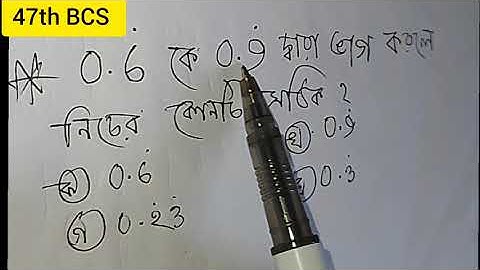 47th BCS
0.6̇ কে 0.9̇ দ্বারা ভাগ করলে
নিচের কোনটি সঠিক ?
ক) 0.6̇ 0.9̇
গ) 0.2̇3̇ 0.3̇